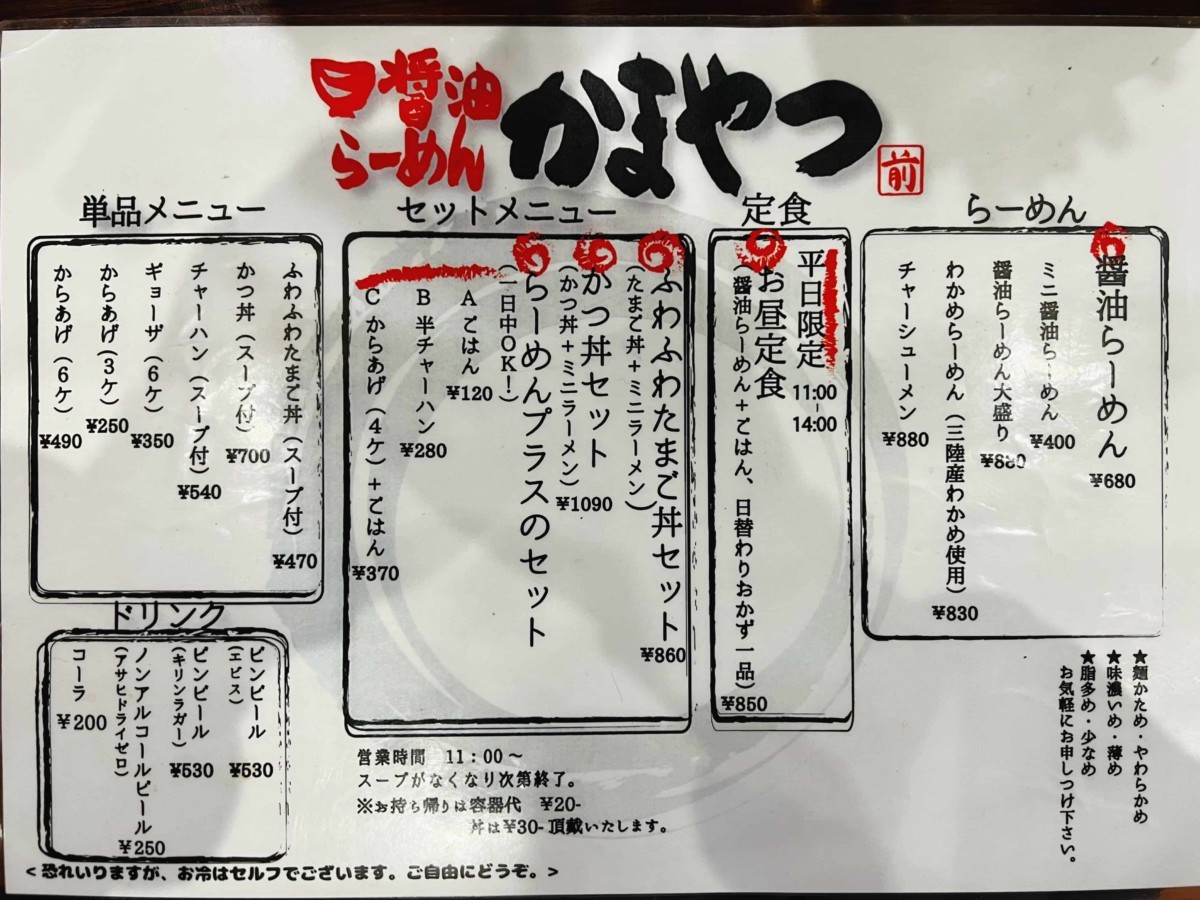 醤油
らーめん
かまやつ
前
らーめん
醤油らーめん
¥680
ミニ醤油らーめん
¥400
醤油らーめん大盛り
¥830
わかめらーめん（三陸産わかめ使用）
¥830
チャーシューメン
¥880
定食
平日限定
11:00
-
14:00
お昼定食
（醤油らーめん+ごはん、日替わりおかず一品）
¥850
セットメニュー
ふわふわたまご丼セット
（たまご丼+ミニラーメン）
¥860
かつ丼セット
（かつ丼+ミニラーメン）
¥1090
らーめんプラスのセット
（一日中OK！）
A ごはん
¥120
B 半チャーハン
¥280
C からあげ（4ケ）+ごはん
¥370
単品メニュー
ふわふわたまご丼（スープ付）
¥470
かつ丼（スープ付）
¥700
チャーハン（スープ付）
¥540
ギョーザ（6ケ）
¥350
からあげ（3ケ）
¥250
からあげ（6ケ）
¥490
ドリンク
ビンビール
（エビス）
¥530
ビンビール
（キリンラガー）
¥530
ノンアルコールビール
（アサヒドライゼロ）
¥250
コーラ
¥200
★麺かため・やわらかめ
★味濃いめ・薄め
★脂多め・少なめ
お気軽にお申しつけ下さい。
営業時間 11：00～
スープがなくなり次第終了。
※お持ち帰りは容器代 ¥20-
丼は¥30- 頂戴いたします。
＜恐れいりますが、お冷はセルフでございます。ご自由にどうぞ。＞